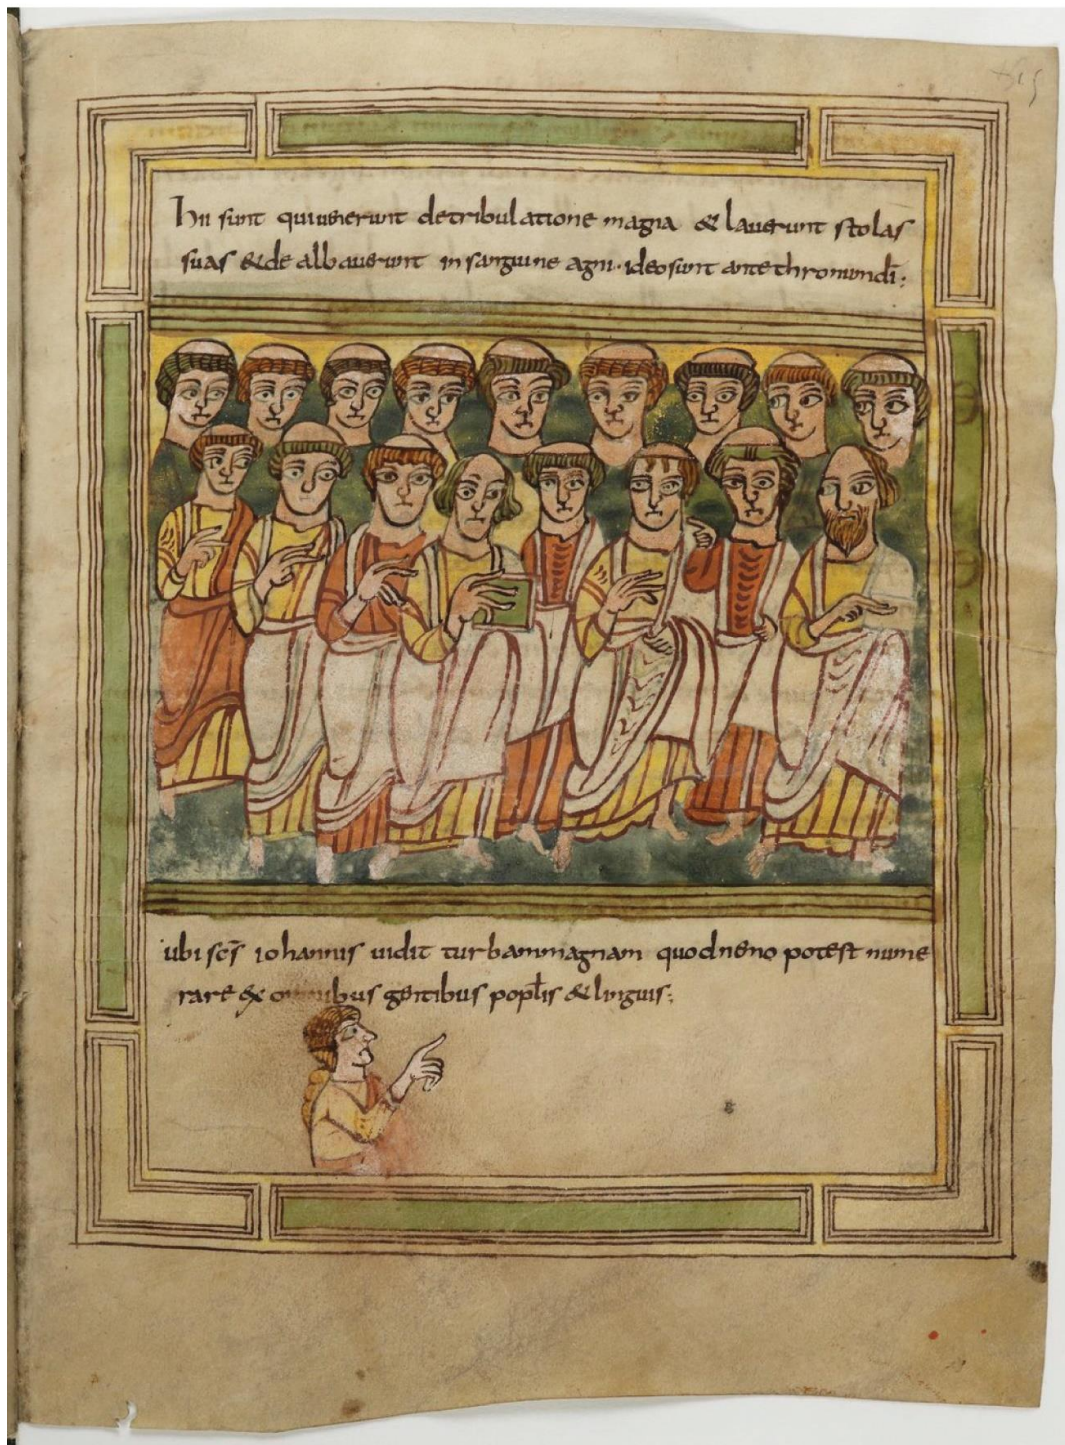 Hii sunt qui uenerunt detribulatione magna & lauerunt stolas
suas &de albauerunt in sanguine agni · ideo sunt ante thronum dī:
ubi scs̄ iohannis uidit turbam magnam quod nemo potest nume
rare ex omnibus gentibus popl̄is & linguis: